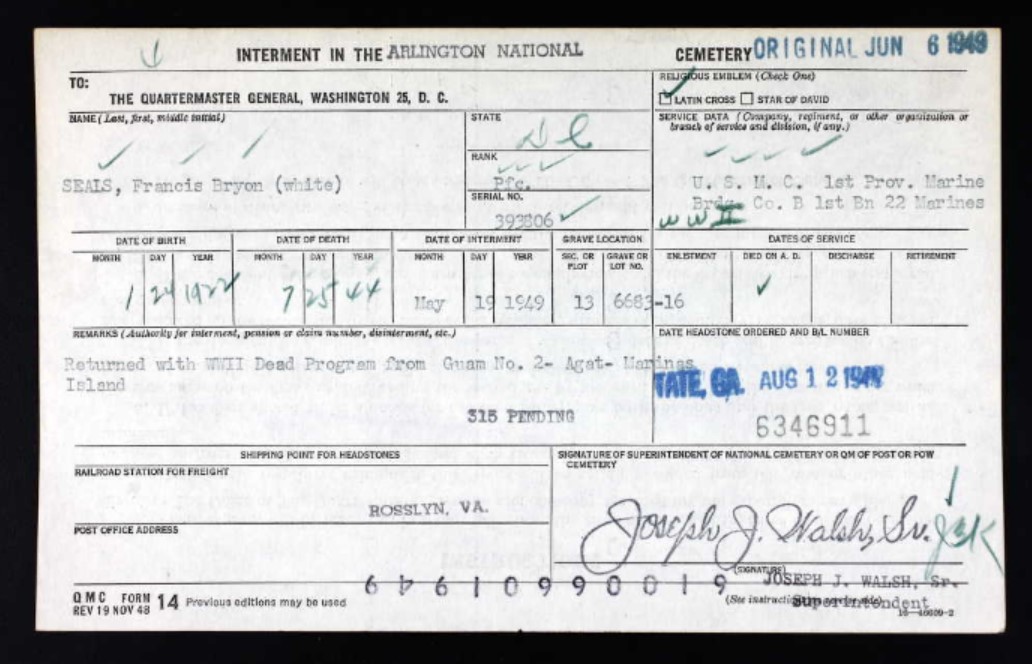 INTERMENT IN THE ARLINGTON NATIONAL CEMETERY ORIGINAL JUN 6 1949
TO:
THE QUARTERMASTER GENERAL, WASHINGTON 25, D. C.
RELIGIOUS EMBLEM (Check One)
LATIN CROSS STAR OF DAVID
NAME (Last, first, middle initial)
SEALS, Francis Bryon (white)
STATE
RANK
Pfc.
SERIAL NO.
393806
SERVICE DATA (Company, regiment, or other organization or
branch of service and division, if any.)
U. S. M. C. 1st Prov. Marine
Brdg. Co. B 1st Bn 22 Marines
WW II
DATE OF BIRTH DATE OF DEATH DATE OF INTERMENT GRAVE LOCATION DATES OF SERVICE
MONTH DAY YEAR MONTH DAY YEAR MONTH DAY YEAR SEC. OR PLOT GRAVE OR LOT NO. ENLISTMENT DIED ON A. D. DISCHARGE RETIREMENT
1 24 1922 7 25 44 May 19 1949 13 6683-16
REMARKS (Authority for interment, pension or claim number, disinterment, etc.)
Returned with WWII Dead Program from Guam No. 2- Agat- Marinas
Island
315 PENDING
DATE HEADSTONE ORDERED AND B/L NUMBER
TATE, GA. AUG 12 1949
6346911
SHIPPING POINT FOR HEADSTONES
RAILROAD STATION FOR FREIGHT
ROSSLYN, VA.
POST OFFICE ADDRESS
SIGNATURE OF SUPERINTENDENT OF NATIONAL CEMETERY OR QM OF POST OR POW
CEMETERY
Joseph J. Walsh, Sr.
(SIGNATURE)
JOSEPH J. WALSH, Sr.
Superintendent
QMC FORM 14 Previous editions may be used
REV 19 NOV 48